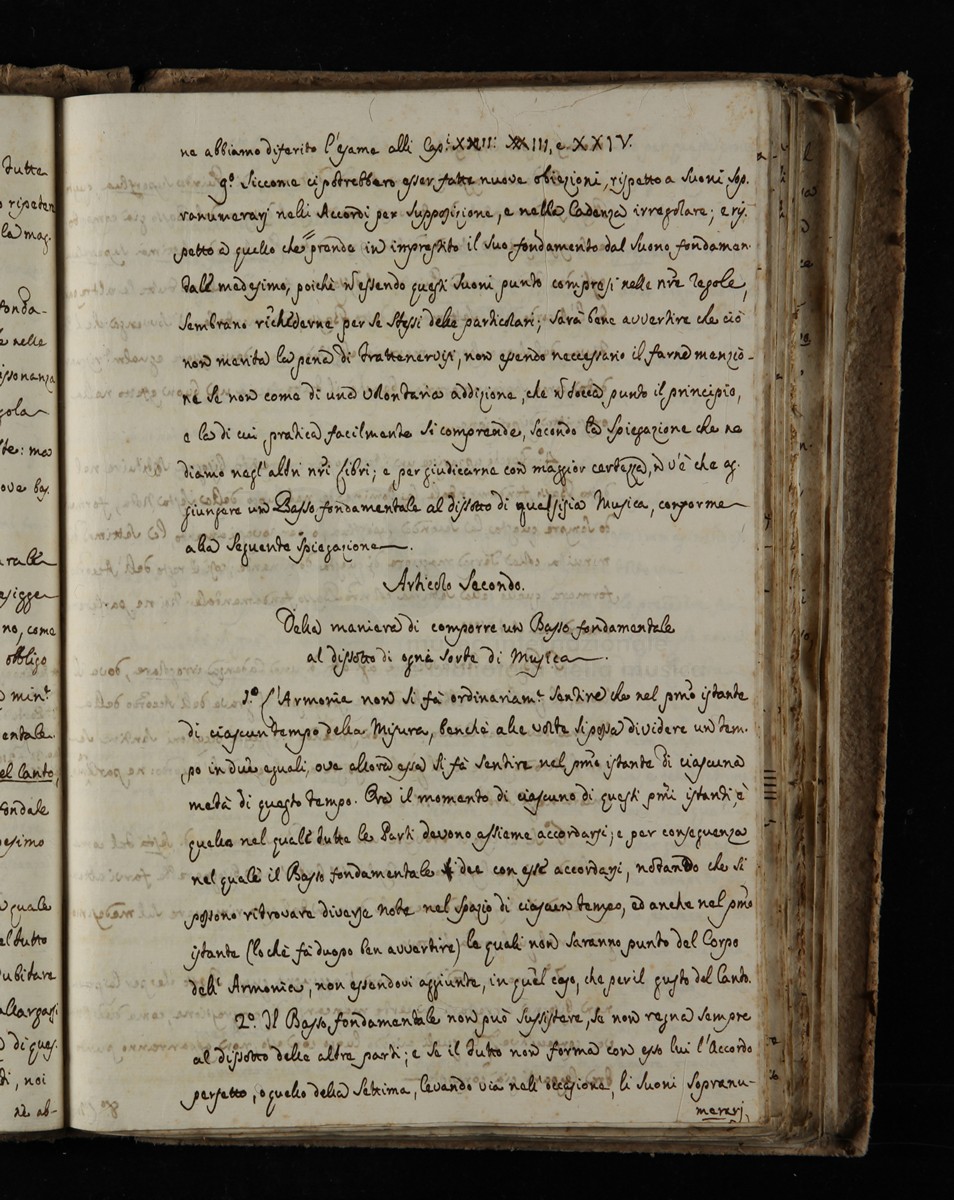 tutte
o ripeten
la mag.
fonda-
e nelle
issonanza
gola
te: ma
ove bas
rale
esigge
no, come
obbligo
min.t
entale
el Canto,
fondale
desimo
quale
el tutto
ubitare
allargasi
di ques.
di, noi
ne ab-
ne abbiamo diferito l'esame alli Cap.i XXII: XXIII, e XXIV.
9.o Siccome ci potrebbero esser fatte nuove obiezioni, rispetto a Suoni Sop.
ranumerarj nelli Accordi per Supposizione, e nella Cadenza irregolare; e ris.
petto a quello che prende in imprestito il suo fondamento dal Suono fondamen.
tall medesimo, poichè ñ essendo questi Suoni punto compresi nelle nr̃e Regole,
sembrano richiederne per se stessi delle particolari; sarà bene avvertire che ciò
non merita la pena di trattenervisi, non essendo necessario il farne menzio-
ne se non come di una volontaria addizione, che ñ tocca punto il principio,
e la di cui pratica facilmente si comprende, secondo la spiegazione che ne
diamo negl'altri nr̃i Libri; e per giudicarne con maggior certezza, ñ v'è che ag.
giungere un Basso fondamentale al dissotto di qualsisia Musica, conforme
alla seguente spiegazione.
Articolo Secondo.
Della maniera di comporre un Basso fondamentale
al dissotto di ogni sorte di Musica.
1.o L'Armonia non si fà ordinariam.t sentire che nel pm̃o istante
di ciascun tempo della Misura, benchè alle volte si possa dividere un tem.
po in due eguali, ove allora essa si fà sentire nel pm̃o istante di ciascuna
metà di questo tempo. Ora il momento di ciascuno di questi pm̃i istanti, è
quello nel quale tutte le Parti devono assieme accordarsi; e per conseguenza
nel quale il Basso fondamentale dee con esse accordarsi, notando che si
possono ritrovare diverse note nel spazio di ciascun tempo, ed anche nel pm̃o
istante (lo chè fà duopo ben avvertire) le quali non saranno punto del Corpo
dell'Armonia, non essendovi aggiunte, in quel caso, che per il gusto del Canto.
2.o Il Basso fondamentale non può sussistere, se non regna sempre
al dissotto delle altre parti; e se il tutto non forma con esso lui l'Accordo
perfetto, o quello della Settima, levando via nell'occasione, li Suoni Sopranu-
merarj,